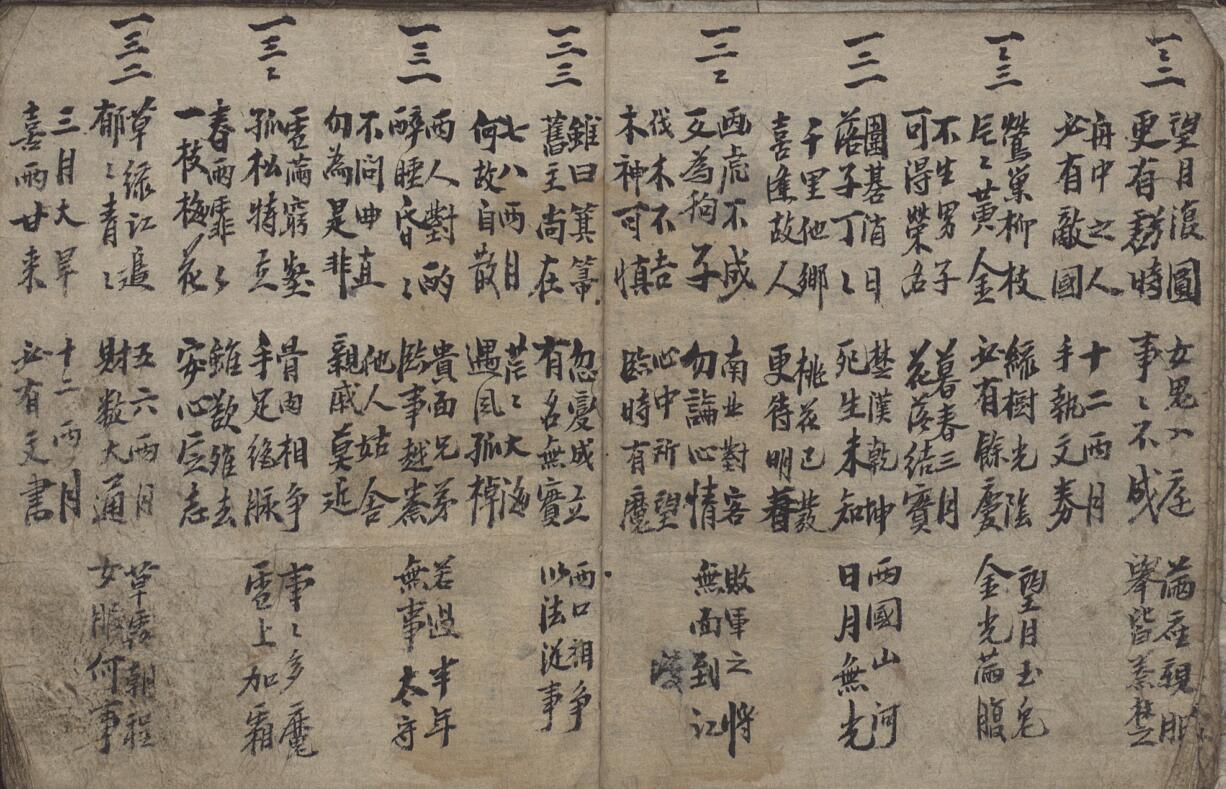 一二二
望月復圓
更有虧時
再中之人
必有敵國
女鬼入庭
事〻不成
十二两月
手執文券
滿座親朋
擧皆秦楚
一二三
鶯巢柳枝
片〻黃金
不生男子
可得榮名
綠樹光陰
必有餘慶
暮春三月
花落結實
望月玉兔
金光滿腹
一三一
圍碁消日
落子丁〻
千里他鄉
喜逢故人
楚漢乾坤
死生未知
桃花已發
更待明春
两國山河
日月無光
一三二
画虎不成
反為狗子
伐木不吉
木神可慎
南北對客
勿論心情
心中所望
臨時有魔
敗軍之將
無面到江
渡
一三三
雖曰箕箒
舊主尚在
七八两月
何故自散
忽變成立
有名無實
茫〻大海
遇風孤棹
两口相争
以法從事
一三一
两人對酌
醉睡昏〻
不問曲直
勿為是非
貴面兄弟
臨事越秦
他人姑舍
親戚莫近
若過半年
無事太守
一三二
雪滿窮壑
孤松特立
春雨霏〻
一枝梅花
骨肉相争
手足絶脉
雖歎雖去
安心定志
事〻多魔
雪上加霜
一三二
草緑江邉
郁〻青〻
三月大旱
喜雨廿来
五六两月
財数大通
十二两月
必有文書
草露朝程
女服何事